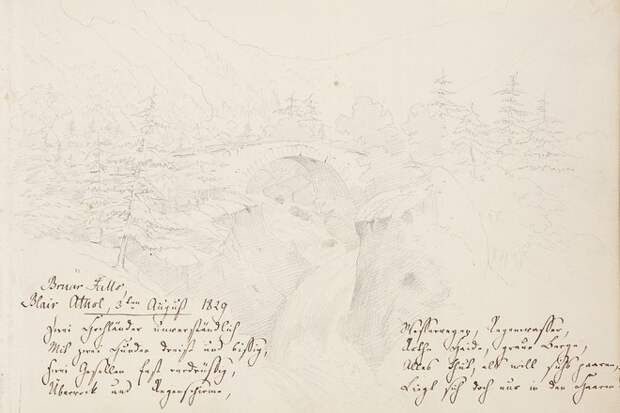 Bruar Falls,
Blair Athol, 3ten August 1829
Zwei Hochländer unverständlich
Mit zwei Hunden dreist und bissig,
Zwei Gesellen fast verdrüßig,
Überrock und Regenschirme,
Wasserregen, Regenwasser,
Rothe Haide, graue Berge,
Alles thut, als will sichs paaren,
Liegt sich doch nur in den Haaren